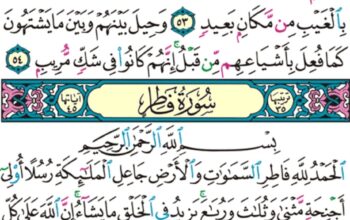 بِالْغَيْبِ مِن مَّكَانٍ بَعِيدٍ ٥٣ وَحِيلَ بَيْنَهُمْ وَبَيْنَ مَا يَشْتَهُونَ
كَمَا فُعِلَ بِأَشْيَاعِهِم مِّن قَبْلُ ۚ إِنَّهُمْ كَانُوا۟ فِى شَكٍّ مُّرِيبٍ ٥٤
ترتيبها ٣٥ سُورَةُ فَاطِرٍ آياتها ٤٥
بِسْمِ ٱللَّهِ ٱلرَّحْمَٰنِ ٱلرَّحِيمِ
ٱلْحَمْدُ لِلَّهِ فَاطِرِ ٱلسَّمَٰوَٰتِ وَٱلْأَرْضِ جَاعِلِ ٱلْمَلَٰٓئِكَةِ رُسُلًا أُو۟لِىٓ
أَجْنِحَةٍ مَّثْنَىٰ وَثُلَٰثَ وَرُبَٰعَ ۚ يَزِيدُ فِى ٱلْخَلْقِ مَا يَشَآءُ ۚ إِنَّ ٱللَّهَ عَلَىٰ كُلِّ